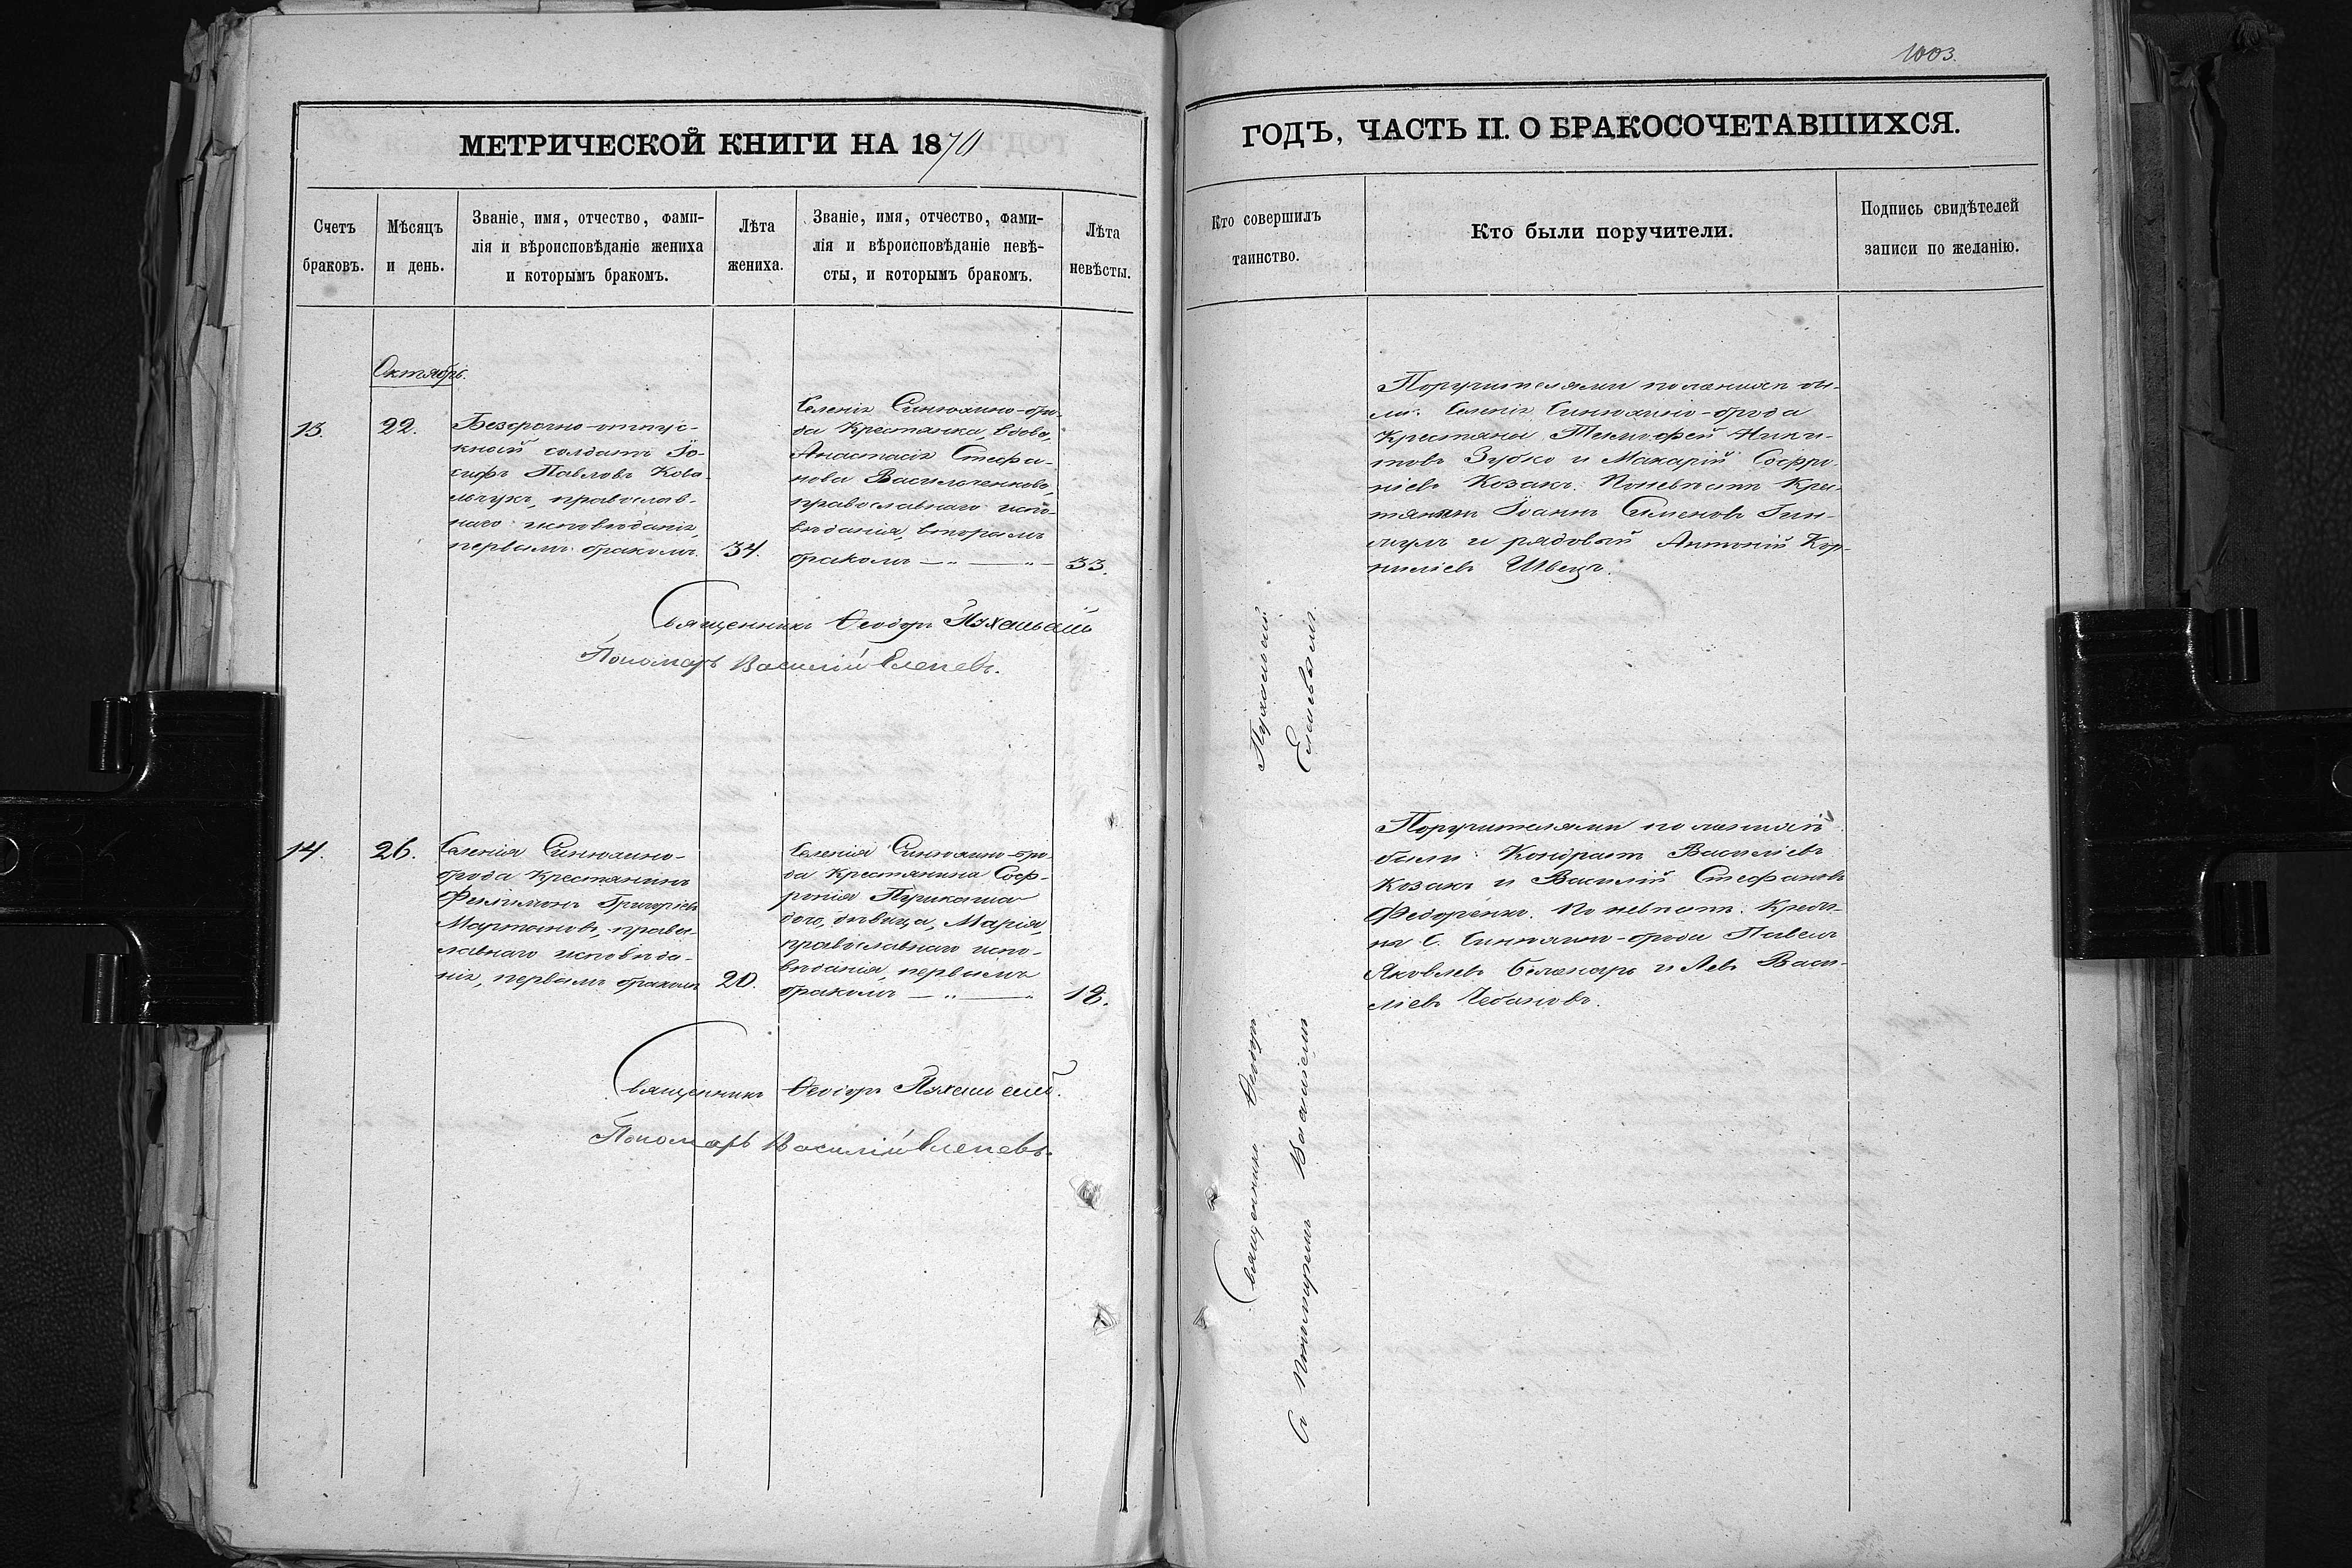 1003.
МЕТРИЧЕСКОЙ КНИГИ НА 1870
ГОДЪ, ЧАСТЬ II. О БРАКОСОЧЕТАВШИХСЯ.
Счетъ
браковъ.
Мѣсяцъ
и день.
Званіе, имя, отчество, фами-
лія и вѣроисповѣданіе жениха
и которымъ бракомъ.
Лѣта
жениха.
Званіе, имя, отчество, фами-
лія и вѣроисповѣданіе невѣ-
сты, и которымъ бракомъ.
Лѣта
невѣсты.
Кто совершилъ
таинство.
Кто были поручители.
Подпись свидѣтелей
записи по желанію.
Октябрь.
13.
22.
Безсрочно-отпус-
кной солдатъ Іо-
сифъ Павловъ Кова-
льчукъ, православ-
наго исповѣданія,
первымъ бракомъ.
34.
Селенія Синюхино-бро-
да Крестянка, вдова,
Анастасія Стефа-
нова Васильченкова,
православнаго испо-
вѣданія, вторымъ
бракомъ — „ — „ —
33.
Священникъ Ѳеодоръ
Пономарь Василій
Поручителями по женихѣ бы-
ли: Селенія Синюхино-брода
Крестяны Тимофей Ники-
товъ Зубко и Макарій Софро-
ніевъ Козакъ. По невѣстѣ Крес-
тянинъ Іоаннъ Сименовъ
и рядовой Антоній Кор-
ниліевъ Швецъ.
14.
26.
Селенія Синюхино-
брода Крестянинъ
Филимонъ Григоріевъ
Мартановъ, право-
славнаго исповѣда-
нія, первымъ бракомъ
20.
Селенія Синюхино-бро-
да Крестянина Соф-
ронія
дочь, дѣвица, Марія,
православнаго испо-
вѣданія, первымъ
бракомъ — „ — „
18.
Священникъ Ѳеодоръ
Пономарь Василій
Поручителями по женихѣ
были: Кондратъ Василіевъ
Козакъ и Василій Стефановъ
Федоренко. По невѣстѣ: Крестя-
не С. Синюхино-брода Павелъ
Яковлевъ и Левъ Васи-
ліевъ Чебановъ.
Священникъ Ѳеодоръ
Съ Пономаремъ Василіемъ